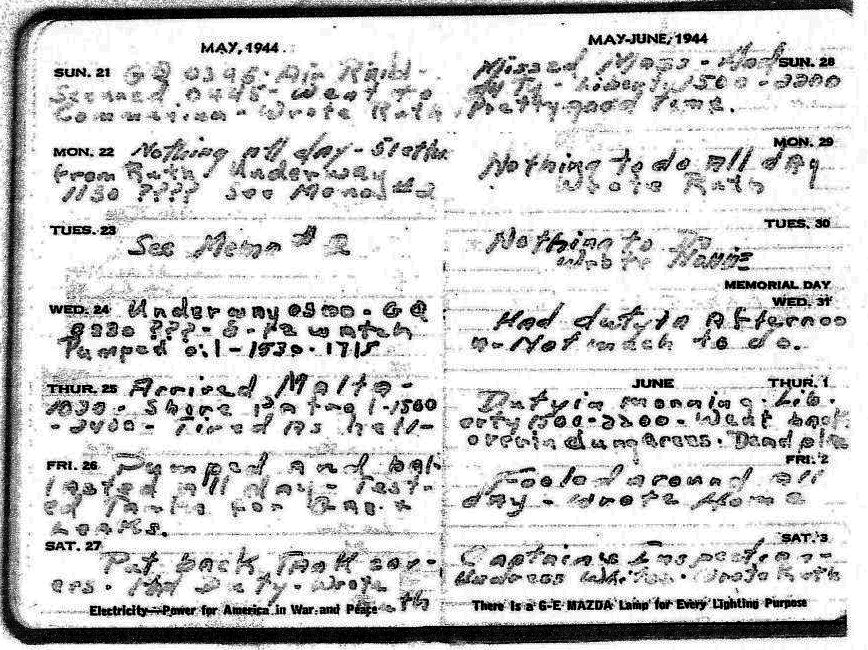 MAY, 1944
SUN. 21 GQ 0345 - Air Raid -
Secured 0445 - Went to
Communion - Wrote Ruth
MON. 22 Nothing all day - 5 letters
from Ruth Underway
1130 ???? See Memo #2
TUES. 23
See Memo # 2
WED. 24 Underway 0300 - GQ
0330 ??? - 8-12 watch
Pumped oil - 1530-1715
THUR. 25 Arrived Malta -
1030 - Shore Patrol - 1500
- 2400 - Tired as hell -
FRI. 26 Pumped and bal-
lasted all day - Test-
ed Tanks for Gas &
Leaks.
SAT. 27 Put back Tank cov-
ers. Had Duty - Wrote
Ruth
Electricity—Power for America in War and Peace
MAY-JUNE, 1944
Missed Mass - Had SUN. 28
duty - Liberty 1500 - 2200
Pretty good time.
MON. 29
Nothing to do all day
Wrote Ruth
TUES. 30
Nothing to Do
Wrote
MEMORIAL DAY
WED. 31
Had duty in Afternoo
n - Not much to do.
JUNE THUR. 1
Duty in morning - Lib-
erty 1300-2200 - Went back
over in dungarees - Dead place
FRI. 2
Fooled around all
day - Wrote Home
SAT. 3
Captain's Inspection -
Undress Whites - Wrote Ruth
There Is a G-E MAZDA Lamp for Every Lighting Purpose